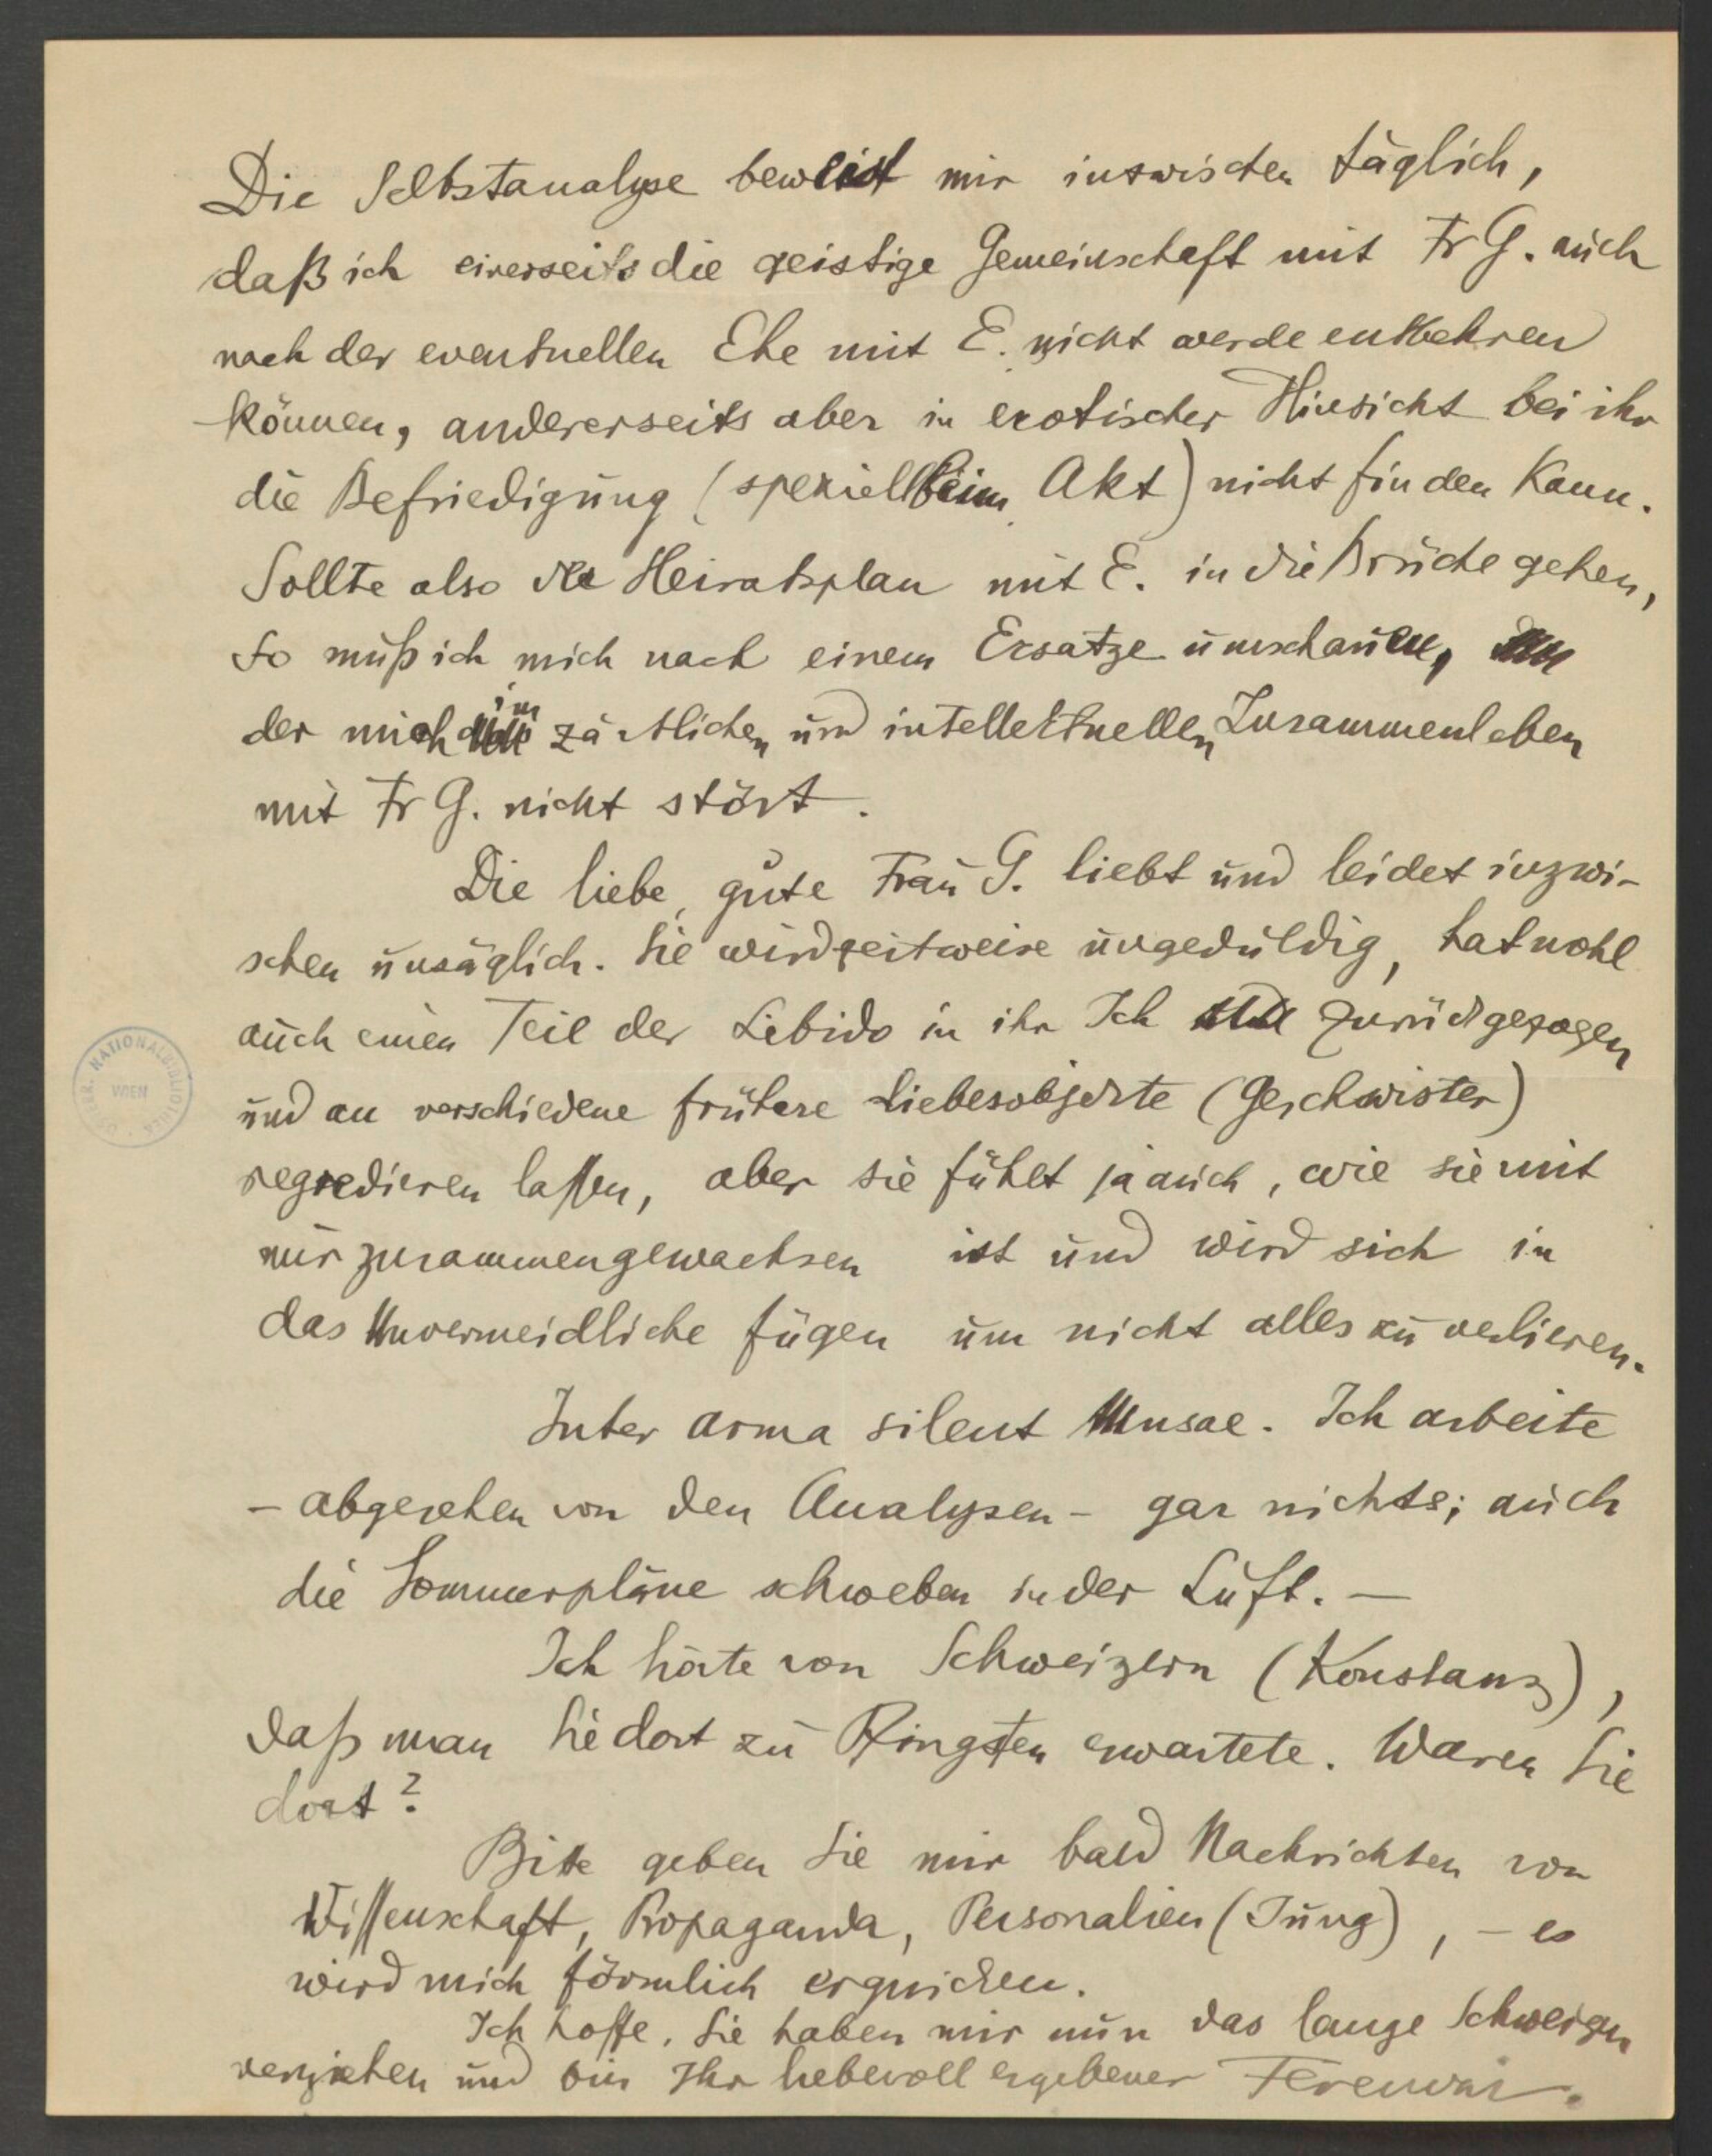 Die Selbstanalyse beweist mir inzwischen täglich,
daß ich einerseits die geistige Gemeinschaft mit Fr G. auch
nach der eventuellen Ehe mit E. nicht werde entbehren
können, andererseits aber in erotischer Hinsicht bei ihr
die Befriedigung (speziell beim Akt) nicht finden kann.
Sollte also der Heiratsplan mit E. in die Brüche gehen,
so muß ich mich nach einem Ersatze umschauen,
der mich im zärtlichen und intellektuellen Zusammenleben
mit Fr G. nicht stört.
Die liebe, gute Frau G. liebt und leidet inzwi-
schen unsäglich. Sie wird zeitweise ungeduldig, hat wohl
auch einen Teil der Libido in ihr Ich zurückgezogen
und an verschiedene frühere Liebesobjecte (Geschwister)
regredieren lassen, aber sie fühlt ja auch, wie sie mit
mir zusammengewachsen ist und wird sich in
das Unvermeidliche fügen um nicht alles zu verlieren.
Inter arma silent Musae. Ich arbeite
– abgesehen von den Analysen – gar nichts; auch
die Sommerpläne schweben in der Luft. —
Ich hörte von Schweizern (Konstanz),
daß man Sie dort zu Pfingsten erwartete. Waren Sie
dort?
Bitte geben Sie mir bald Nachrichten von
Wissenschaft, Propaganda, Personalien (Jung), – es
wird mich förmlich erquicken.
Ich hoffe, Sie haben mir nun das lange Schweigen
verziehen und bin Ihr liebevoll ergebener Ferenczi.
NATIONALBIBLIOTHEK
WIEN